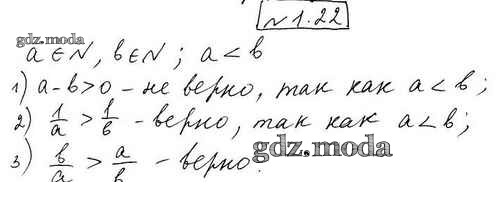 №1.22
gdz.moda
a ∈ N, b ∈ N; a < b
1) a-b>0 - не верно, так как a < b;
2) 1/a > 1/b - верно, так как a < b;
3) b/a > a/b - верно.
gdz.moda